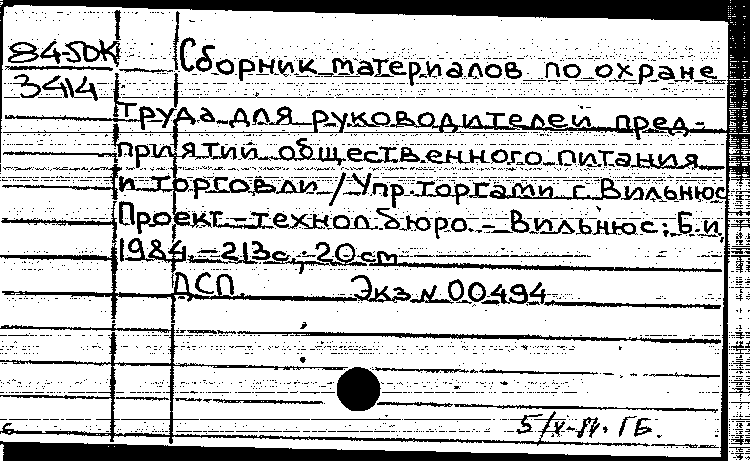 84-5ДК
3414
Сборник материалов по охране
труда для руководителей пред-
приятий общественного питания
и торговли / Упр. торгами г. Вильнюс
Проект.-технол. бюро. - Вильнюс: Б.и,
1984. - 213с.; 20см
ДСП. Экз. N 00494
5/X-84. ГБ.